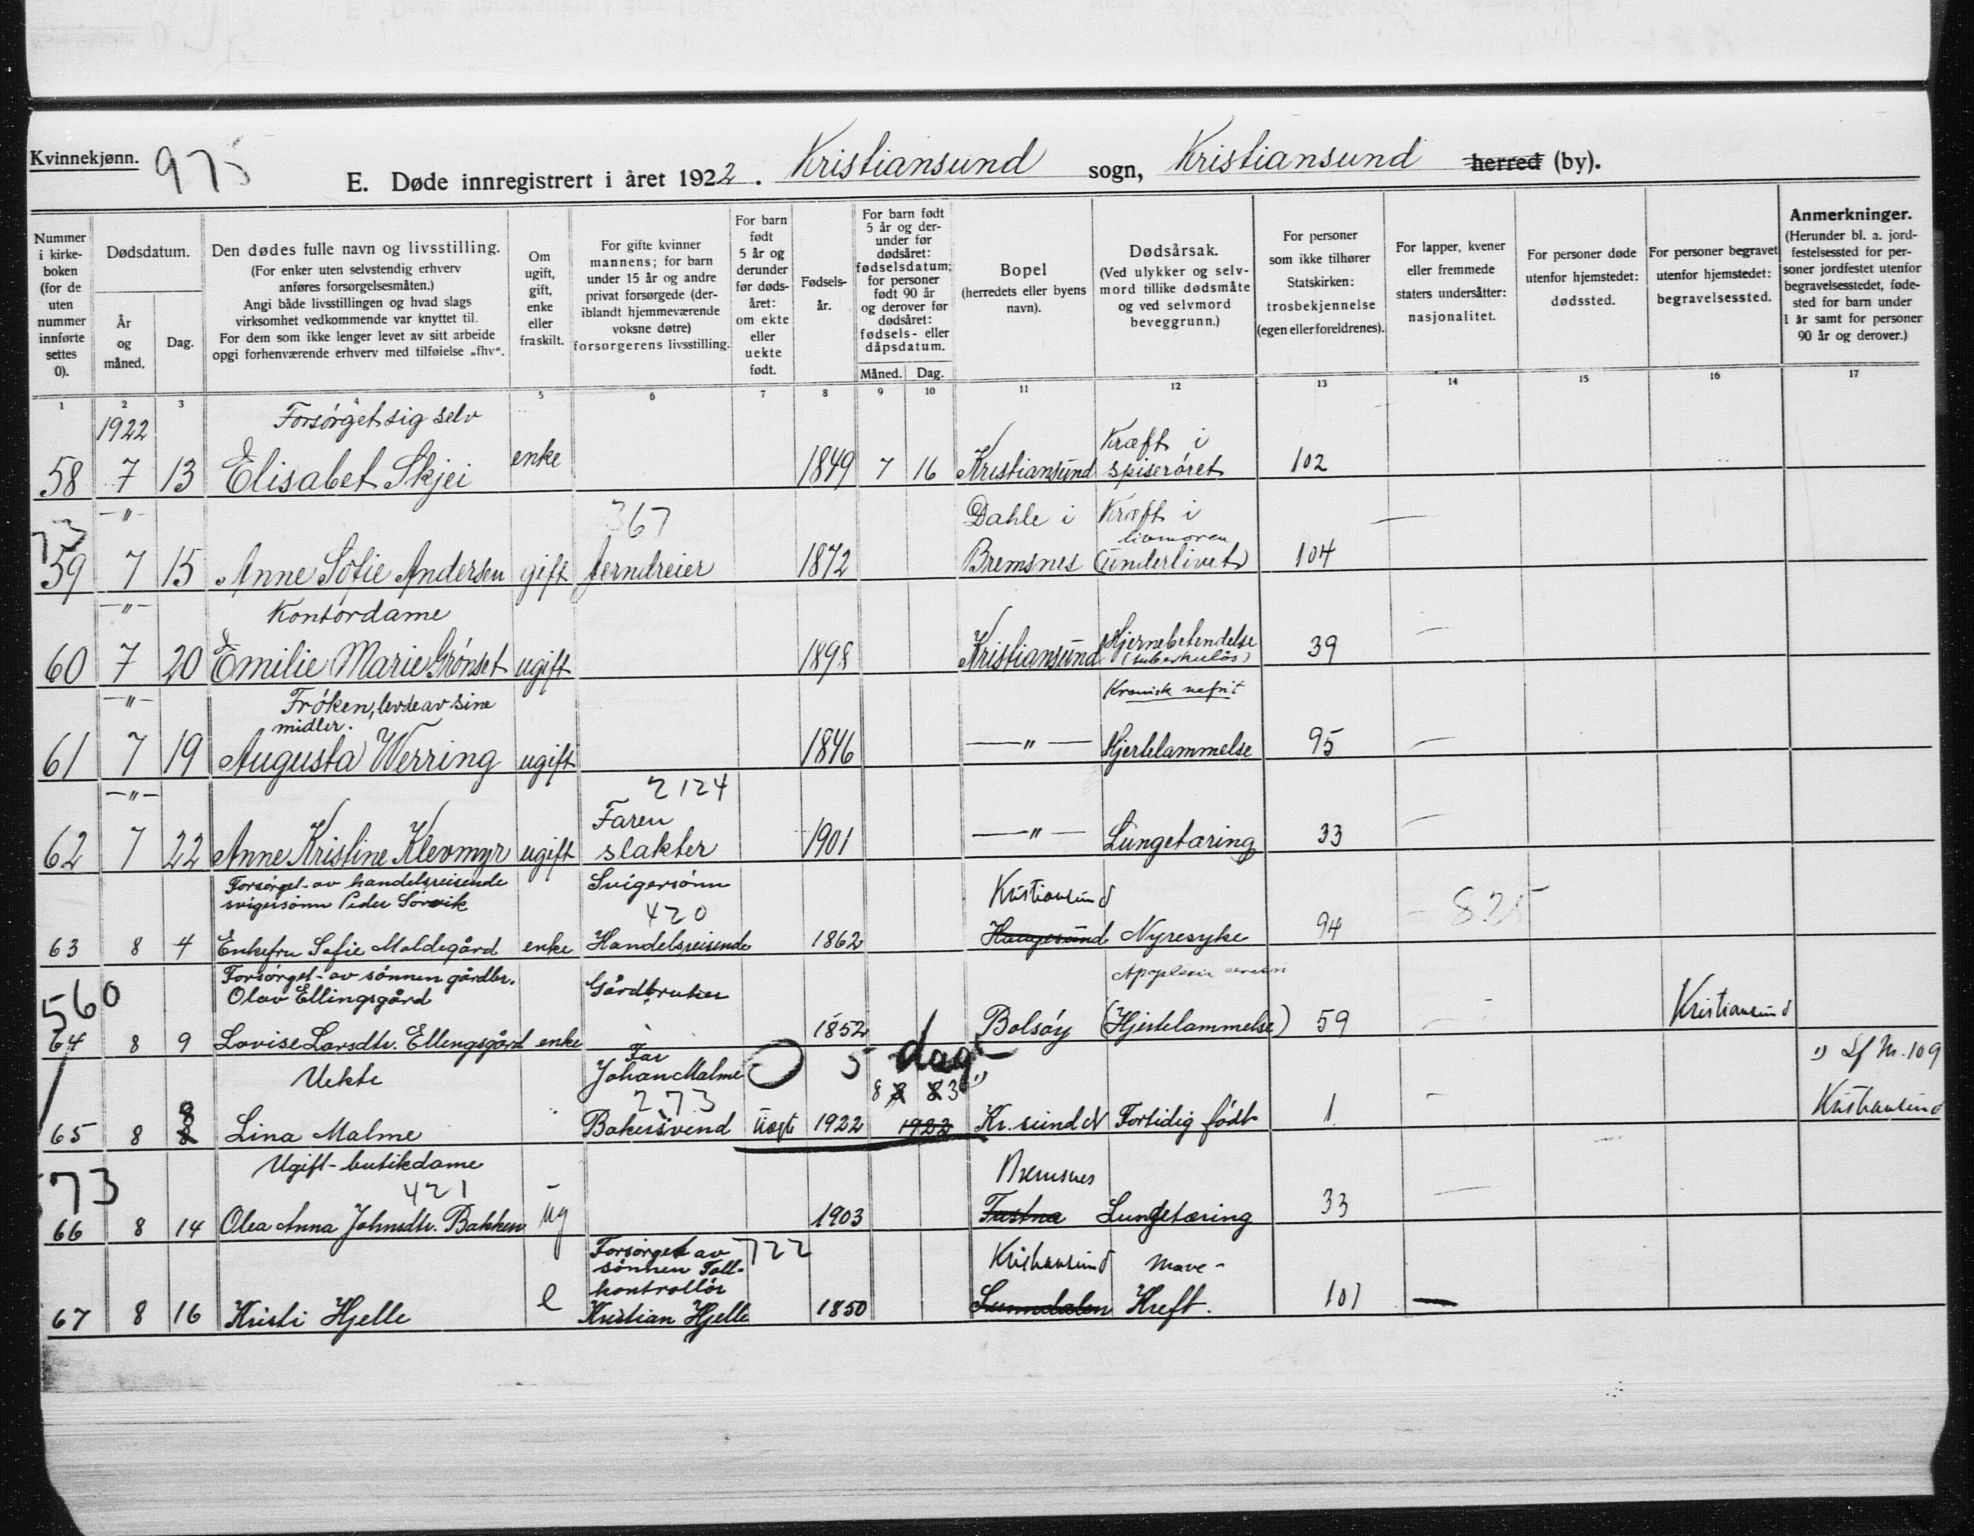 Kvinnekjønn. 975
E. Døde innregistrert i året 1922. Kristiansund sogn, Kristiansund herred (by).
Nummer i kirkeboken (for de uten nummer innførte settes 0).
Dødsdatum.
År og måned.
Dag.
Den dødes fulle navn og livsstilling.
(For enker uten selvstendig erhverv anføres forsørgelsesmåten.)
Angi både livsstillingen og hvad slags virksomhet vedkommende var knyttet til.
For dem som ikke lenger levet av sitt arbeide opgi forhenværende erhverv med tilføielse „fhv“.
Om ugift, gift, enke eller fraskilt.
For gifte kvinner mannens; for barn under 15 år og andre privat forsørgede (deriblandt hjemmeværende voksne døtre) forsørgerens livsstilling.
For barn født 5 år og derunder før dødsåret: om ekte eller uekte født.
Fødselsår.
For barn født 5 år og derunder før dødsåret: fødselsdatum; for personer født 90 år og derover før dødsåret: fødsels- eller dåpsdatum.
Måned. Dag.
Bopel (herredets eller byens navn).
Dødsårsak.
(Ved ulykker og selvmord tillike dødsmåte og ved selvmord beveggrunn.)
For personer som ikke tilhører Statskirken: trosbekjennelse (egen eller foreldrenes).
For lapper, kvener eller fremmede staters undersåtter: nasjonalitet.
For personer døde utenfor hjemstedet: dødssted.
For personer begravet utenfor hjemstedet: begravelsessted.
Anmerkninger.
(Herunder bl. a. jordfestelsessted for personer jordfestet utenfor begravelsesstedet, fødested for barn under 1 år samt for personer 90 år og derover.)
1 2 3 4 5 6 7 8 9 10 11 12 13 14 15 16 17
1922 Forsørget sig selv Kræft i
58 7 13 Elisabet Skjei enke 1849 7 16 Kristiansund spiserøret 102
—"— 367 Dahle i Kræft i —
73 livmoren
59 7 15 Anne Sofie Andersen gift Jerndreier 1872 Bremsnes (underlivet) 104
—"— Kontordame
60 7 20 Emilie Marie Grønset ugift 1898 Kristiansund Hjernebetendelse (tuberkuløs) 39 —
—"— Frøken, levde av sine midler. Kronisk nefrit
61 7 19 Augusta Werring ugift 1846 —"— Hjertelammelse 95 —
—"— 2124
Faren
62 7 22 Anne Kristine Klevmyr ugift slakter 1901 —"— Lungetæring 33 —
Forsørget av handelsreisende Svigersønn Kristiansund
svigersønn Peder Sørvik 420 — 825
63 8 4 Enkefru Sofie Moldegård enke Handelsreisende 1862 Haugesund Nyresyke 94
Forsørget av sønnen gårdbr. Apoplexia cerebri
560 Olav Ellingsgård Gårdbruker
64 8 9 Lovise Larsdtr. Ellingsgård enke 1852 Bolsøy (Hjertelammelse) 59 — Kristiansund
Far 5 dage ") Lf Nr. 109
Uekte Johan Malme 8 8 8 3 ")
273 Kristiansund
65 8 8 8 Lina Malme Bakersvend Uegte 1922 1922 Kr.sund N Fortidig født 1 —
73 Ugift - butikdame Bremsnes
421
66 8 14 Olea Anna Johnsdtr. Bakken ug 1903 Tustna Lungetæring 33 —
Forsørget av 722 Kristiansund Mave-
sønnen Toll-
kontrollør
67 8 16 Kristi Hjelle e Kristian Hjelle 1850 Sunndalen Kreft. 101 —